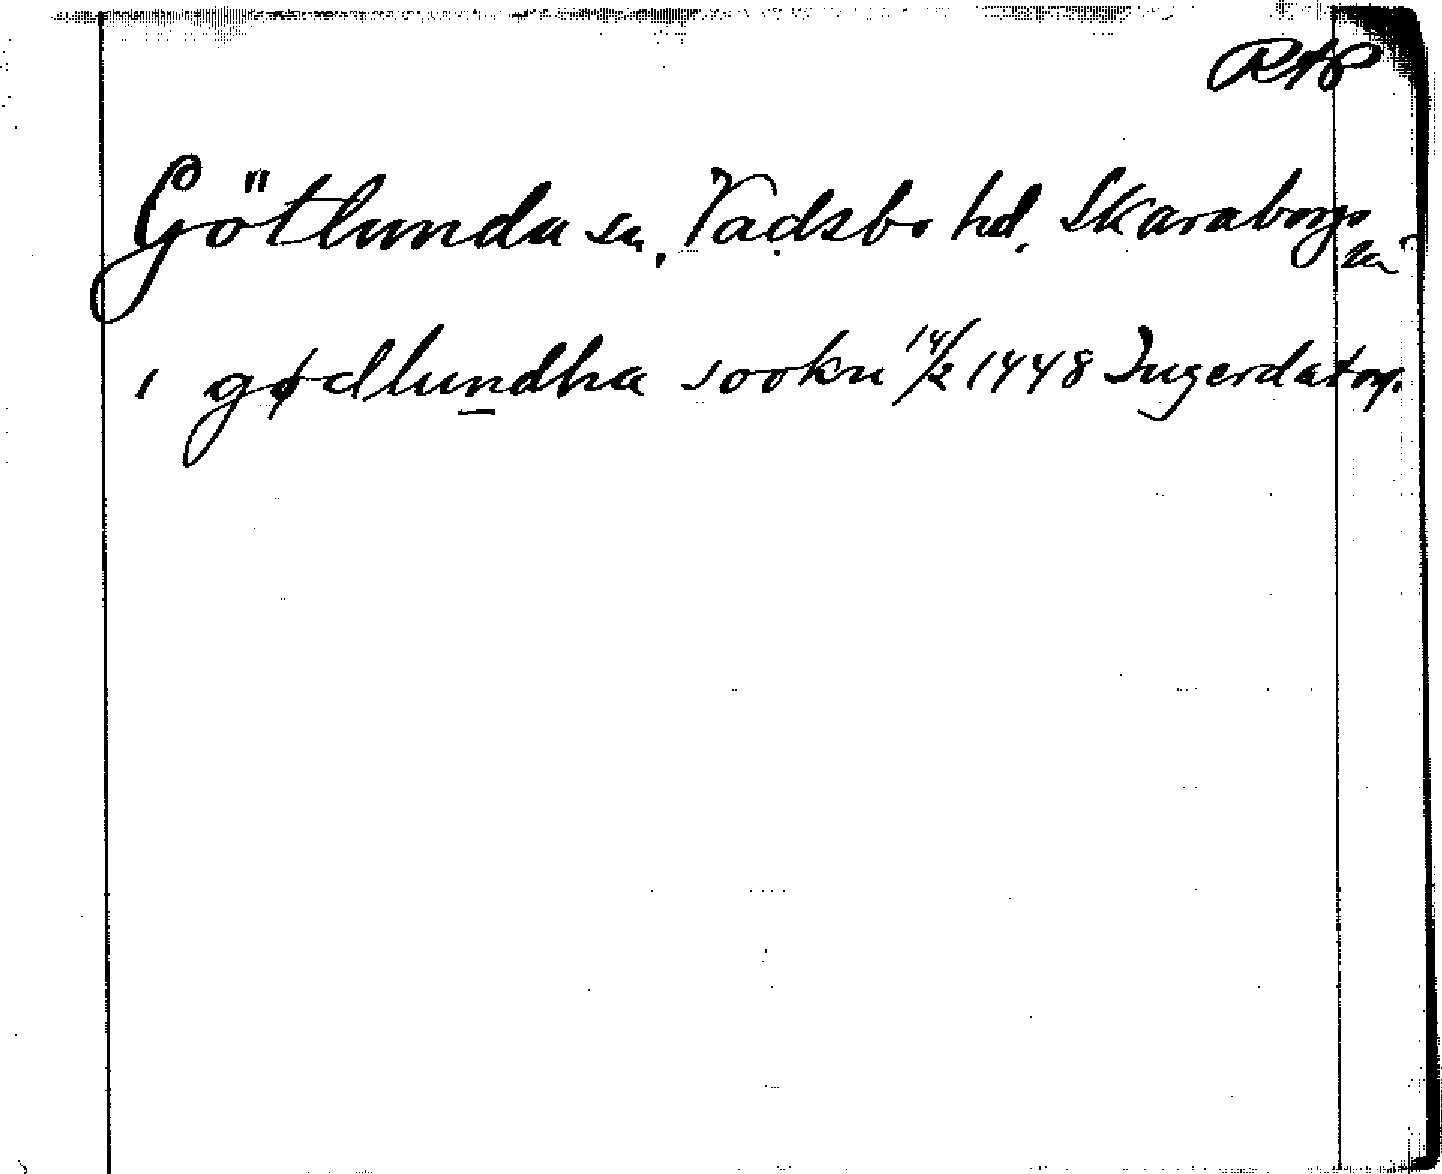 RAP
Götlunda sn, Vadsbo hd, Skaraborgs
län
i gødlundha sookn 14/2 1448 Ingerdatorp.